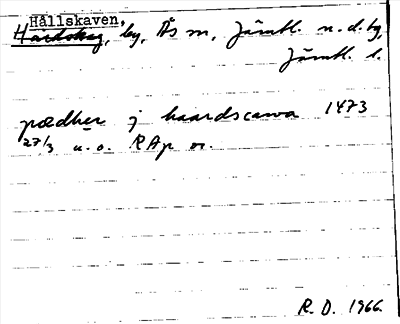 Hållskaven,
Hårdskog, by, Ås sn, Jämtl. n. d. tg,
Jämtl. l.
pædher j haardscawa 1473
27/3 u. o. RAp or.
R. D. 1966.